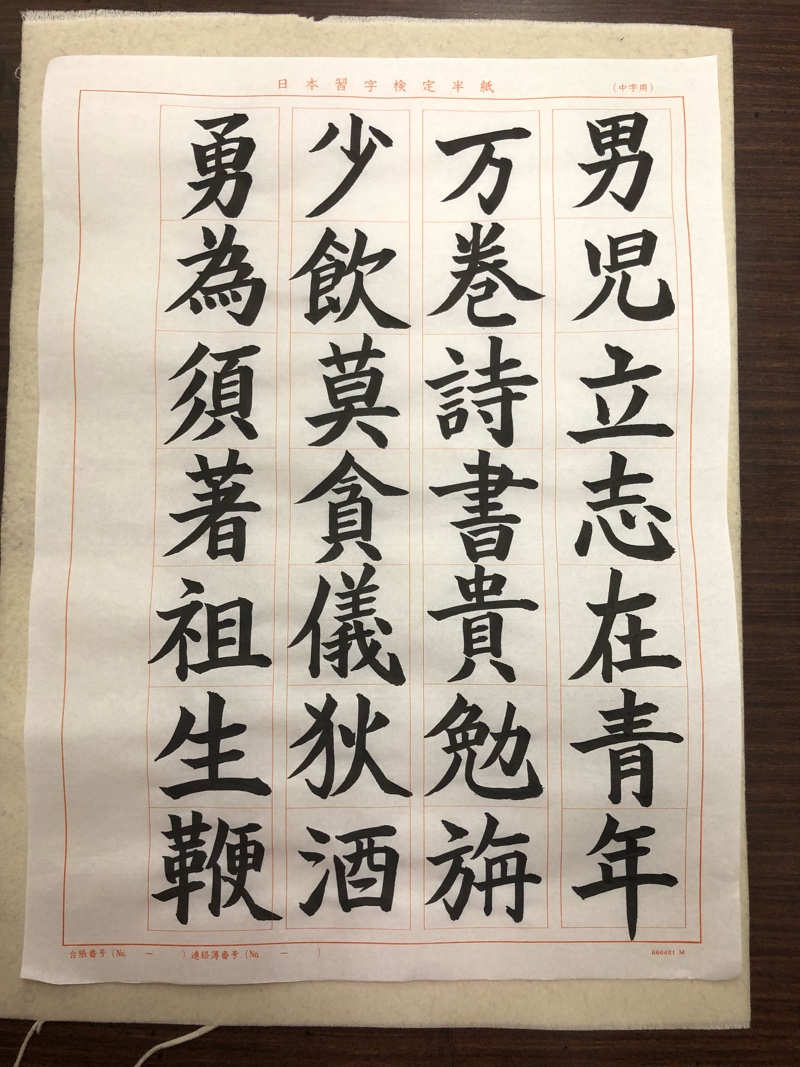 日本習字検定半紙
(中字用)
男児立志在青年
万巻詩書貴勉旃
少飲莫貪儀狄酒
勇為須著祖生鞭
台帳番号(No. - ) 連絡簿番号(No. - )
060401 M